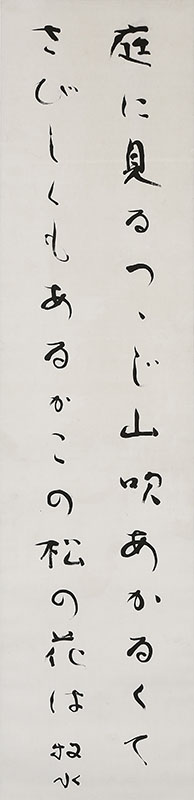 庭に見るつゝじ山吹あかるくて
さびしくもあるかこの松の花は 牧水